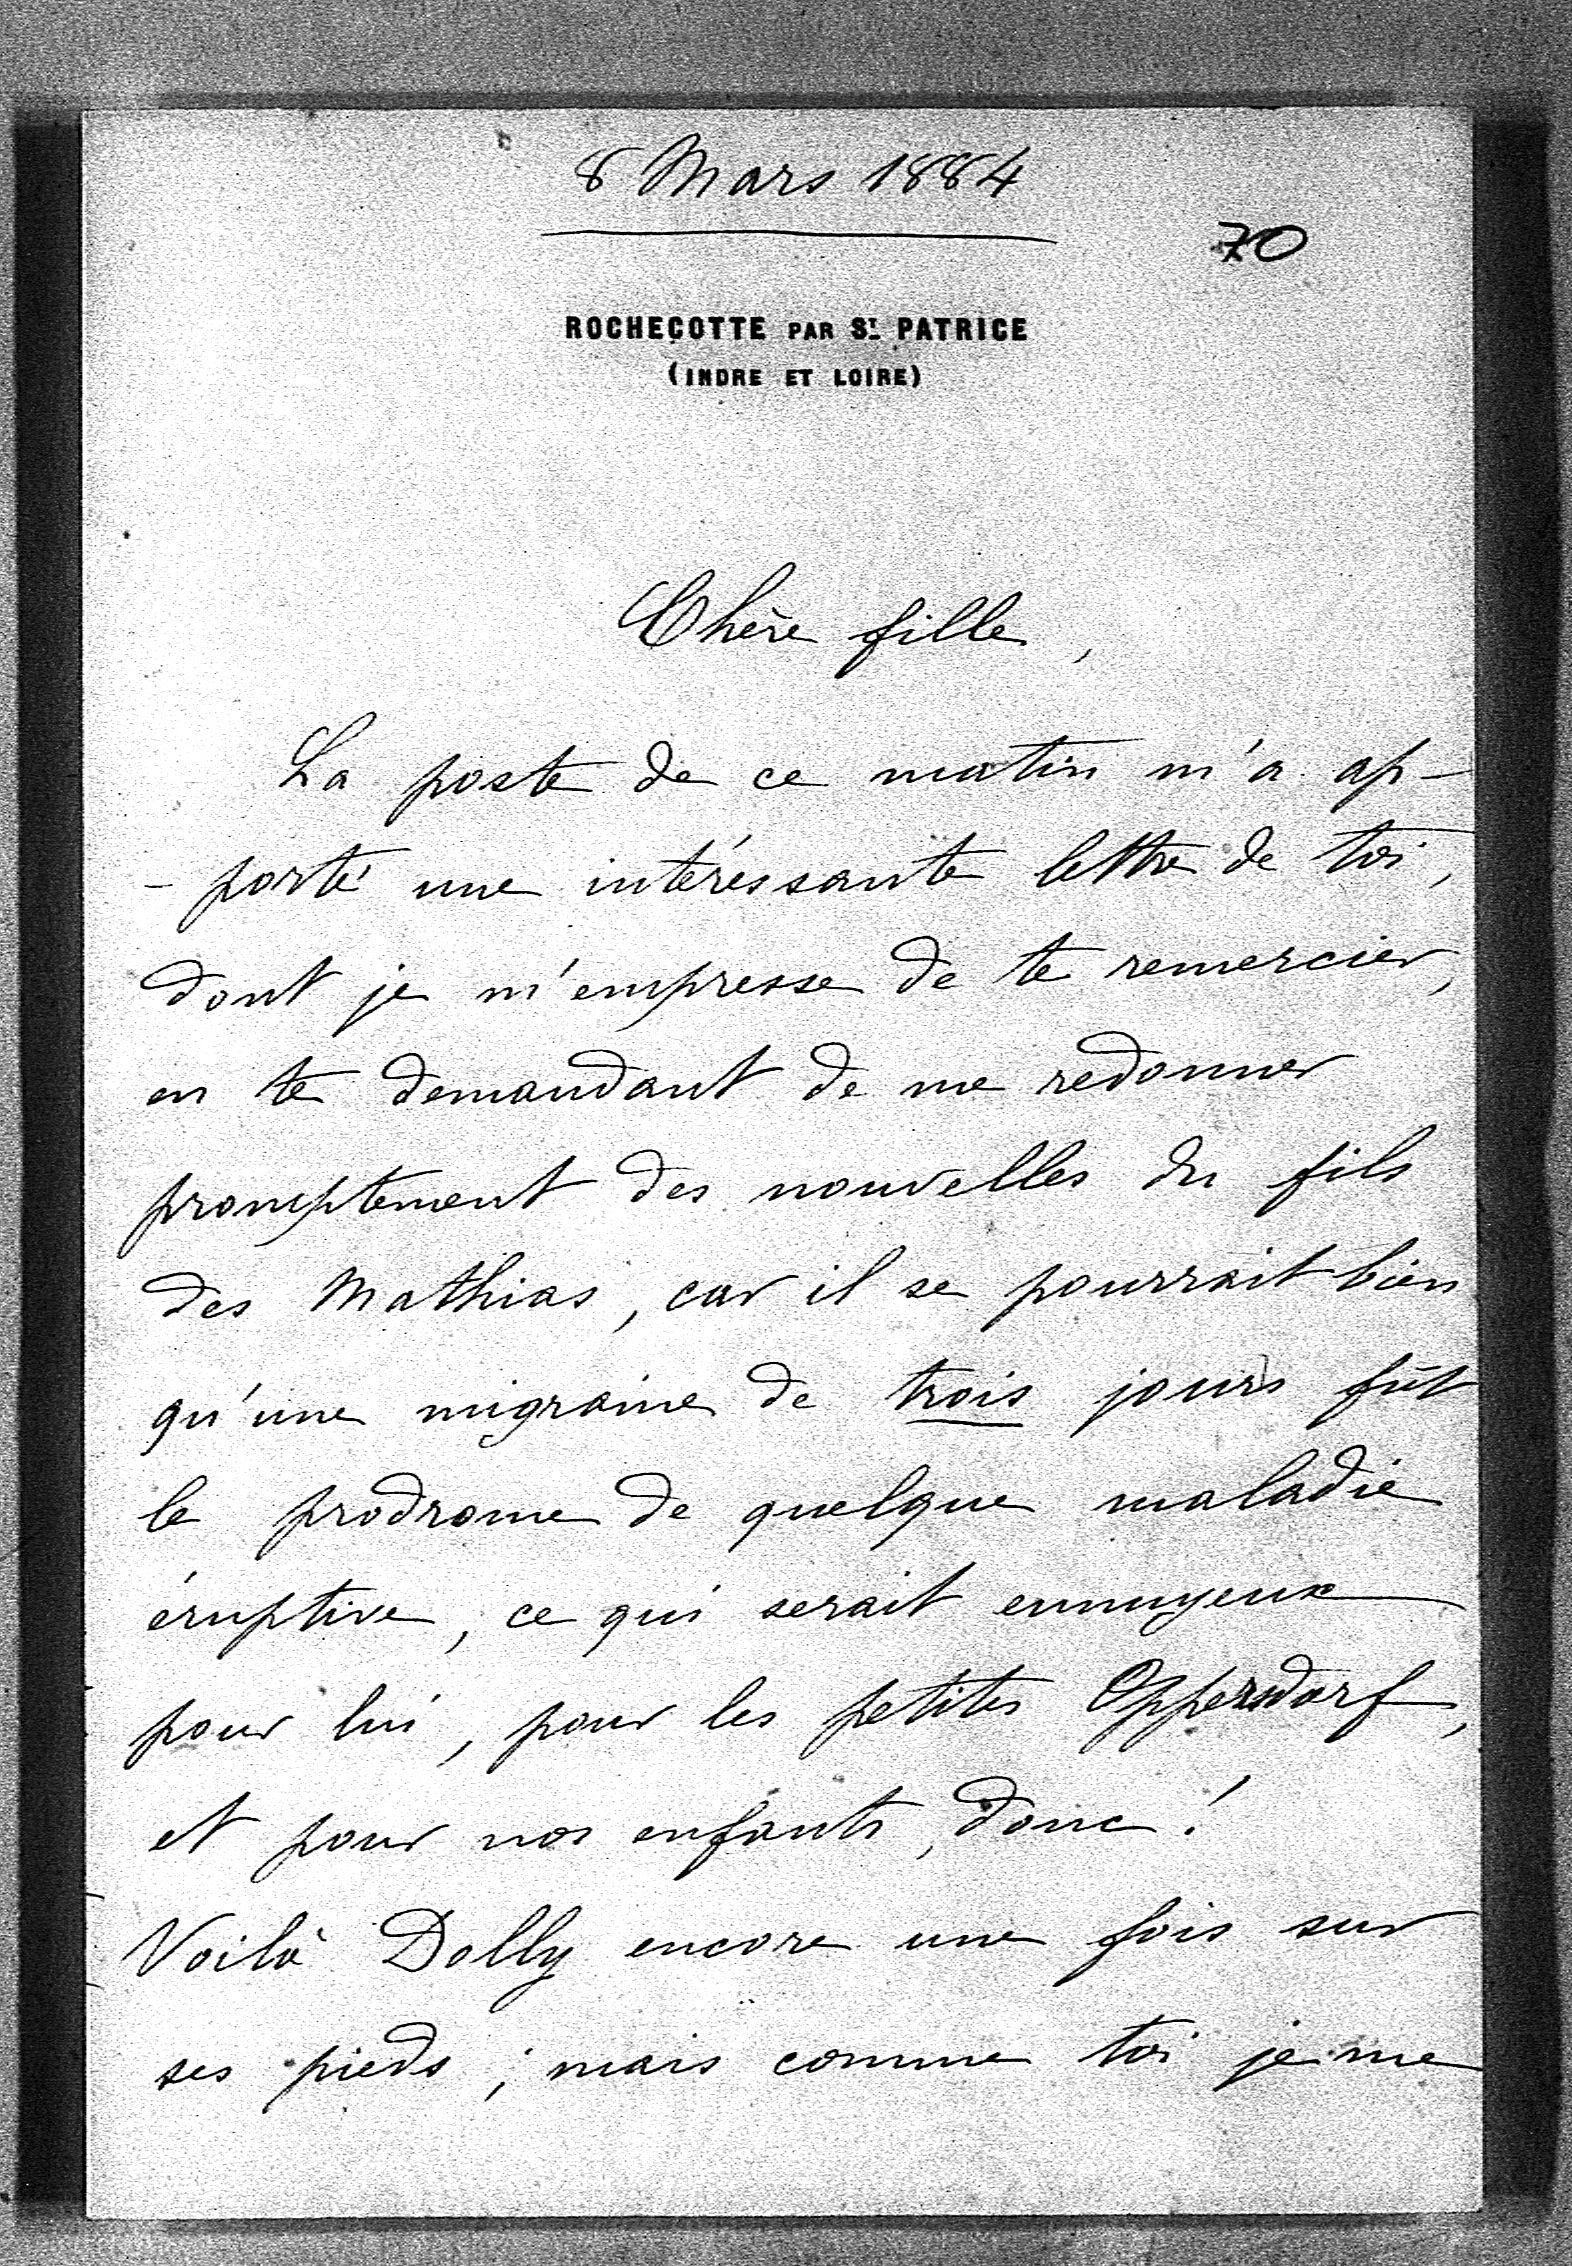 8 Mars 1884
70
ROCHECOTTE PAR St. PATRICE
(INDRE ET LOIRE)
Chère fille,
La poste de ce matin m'a ap-
- porté une intéressante lettre de toi,
dont je m'empresse de te remercier,
en te demandant de me redonner
promptement des nouvelles du fils
des Mathias, car il se pourrait bien
qu'une migraine de trois jours fût
le prodrome de quelque maladie
éruptive, ce qui serait ennuyeux
pour lui, pour les petites Oppersdorf,
et pour nos enfants, donc!
Voilà Dolly encore une fois sur
ses pieds; mais comme toi je me